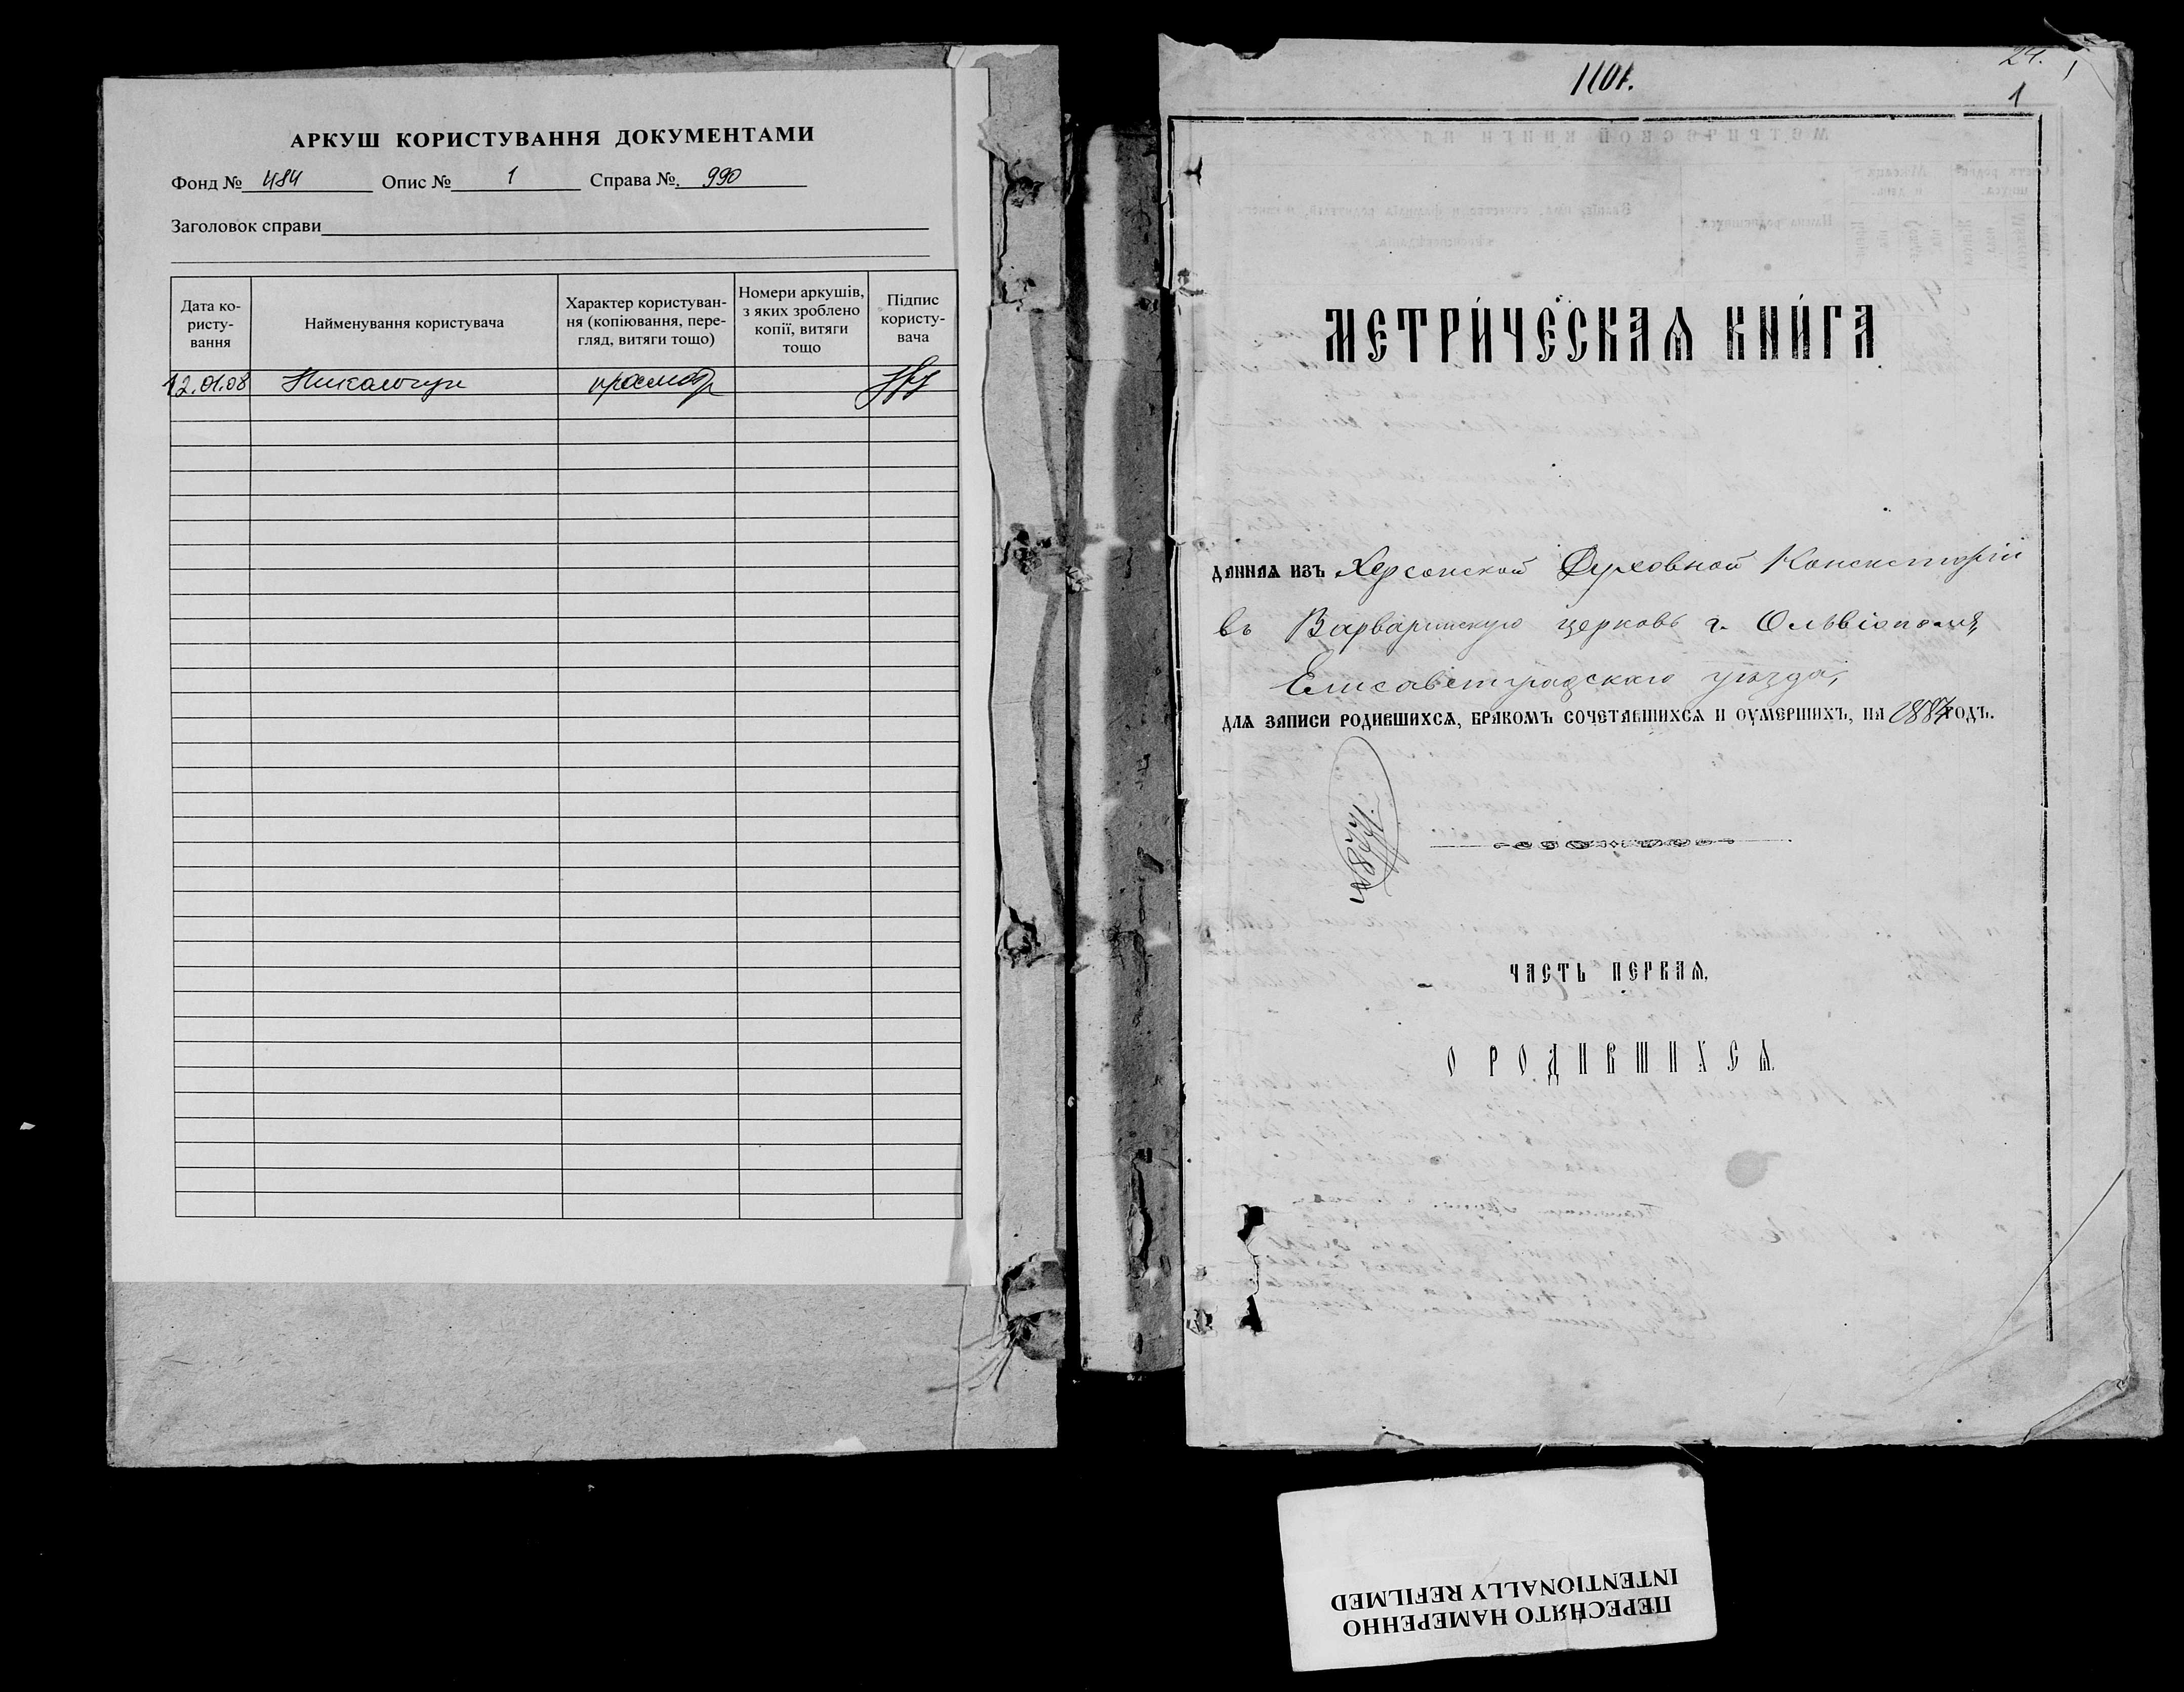 АРКУШ КОРИСТУВАННЯ ДОКУМЕНТАМИ
Фонд № 484 Опис № 1 Справа № 990
Заголовок справи
Дата ко-
ристу-
вання
Найменування користувача
Характер користуван-
ня (копіювання, пере-
гляд, витяги тощо)
Номери аркушів,
з яких зроблено
копії, витяги
тощо
Підпис
користу-
вача
12.01.08 просмотр
1101.
24.
1
МЕТРИ́ЧЕСКАѦ КНИ́ГА
ДАННАѦ ИЗЪ Херсонской Духовной Консисторіи
въ Варваринскую церковь г. Ольвіополя
Елисаветградскаго уѣзда,
ДЛѦ ЗАПИСИ РОДИВШИХСѦ, БРАКОМЪ СОЧЕТАВШИХСѦ И ОУМЕРШИХЪ, НА 1884 ГОДЪ.
ЧАСТЬ ПЕРВАѦ,
О РОДИВШИХСѦ
ПЕРЕСНЯТО НАМЕРЕННО
INTENTIONALLY REFILMED